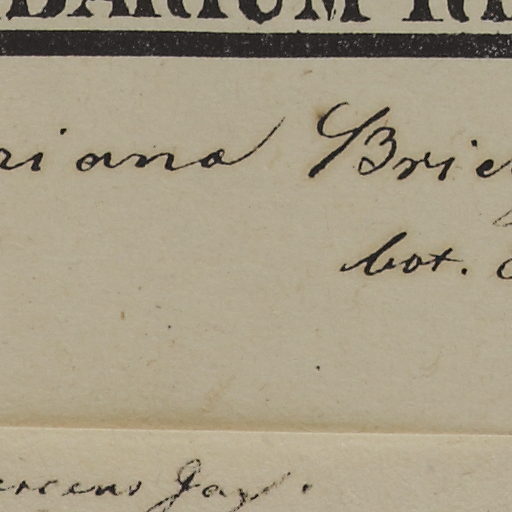 BARIUM RE
riana Brie
bot.
ercens Gay.